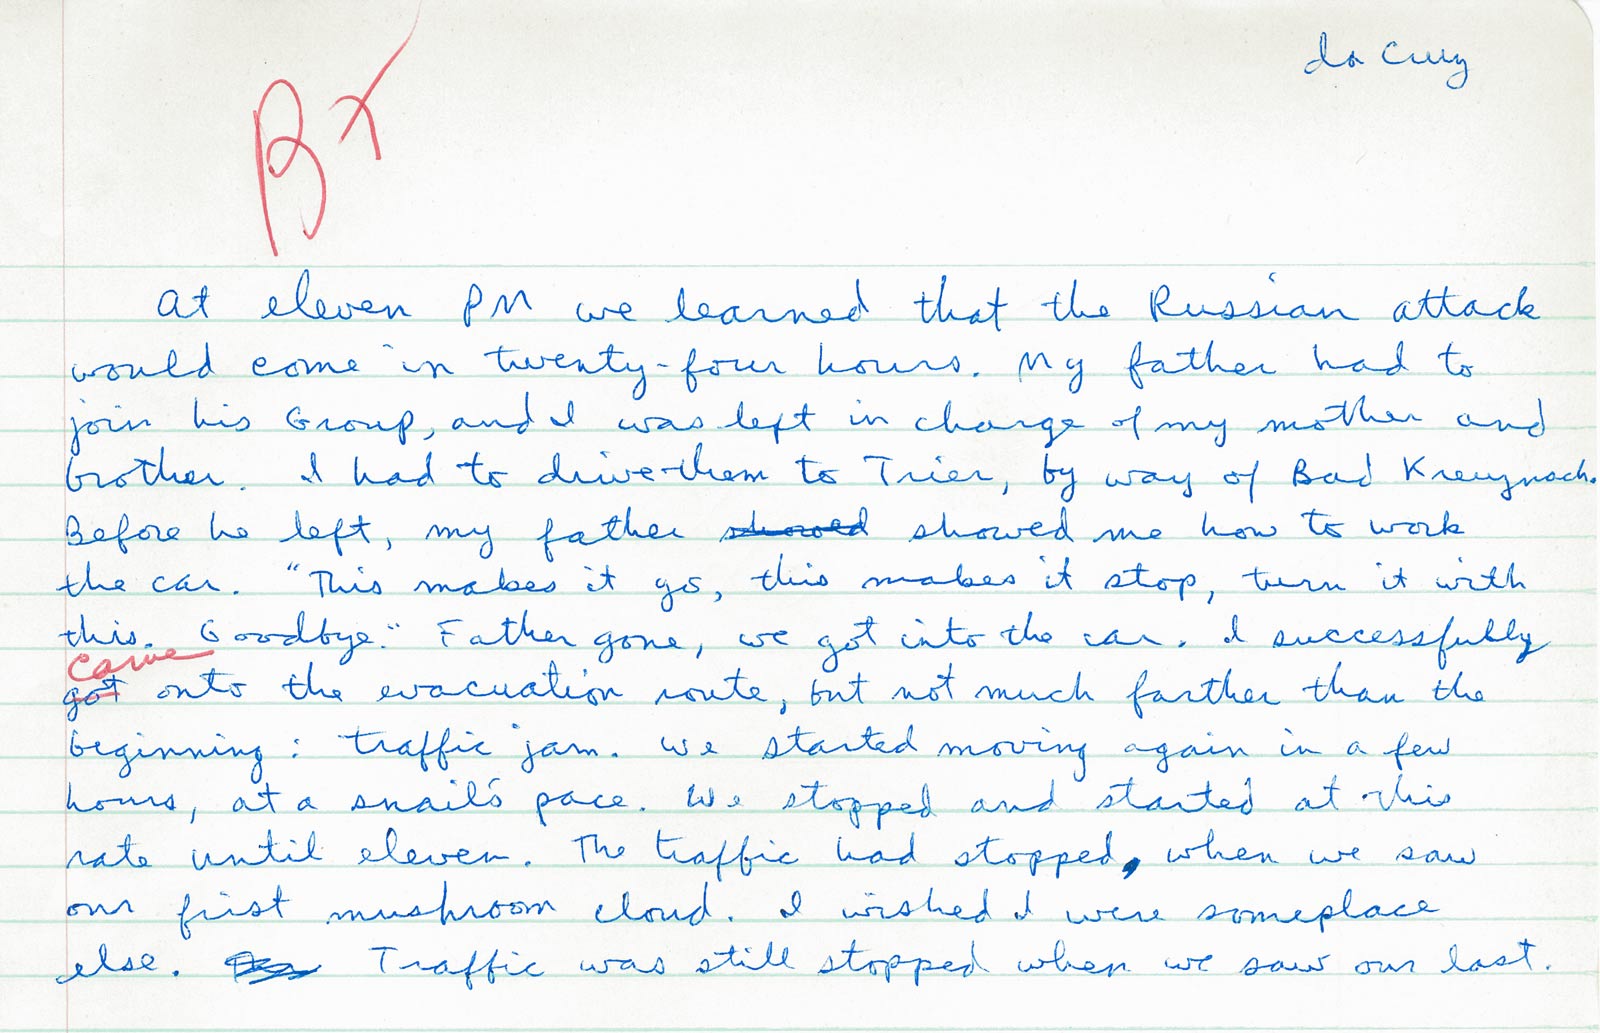 da Cruz
B+
At eleven PM we learned that the Russian attack
would come in twenty-four hours. My father had to
join his Group, and I was left in charge of my mother and
brother. I had to drive them to Trier, by way of Bad Kreuznach.
Before he left, my father showed showed me how to work
the car. "This makes it go, this makes it stop, turn it with
this. Goodbye." Father gone, we got into the car. I successfully
came
got onto the evacuation route, but not much farther than the
beginning: traffic jam. We started moving again in a few
hours, at a snail's pace. We stopped and started at this
rate until eleven. The traffic had stopped, when we saw
our first mushroom cloud. I wished I were someplace
else. Traffic was still stopped when we saw our last.